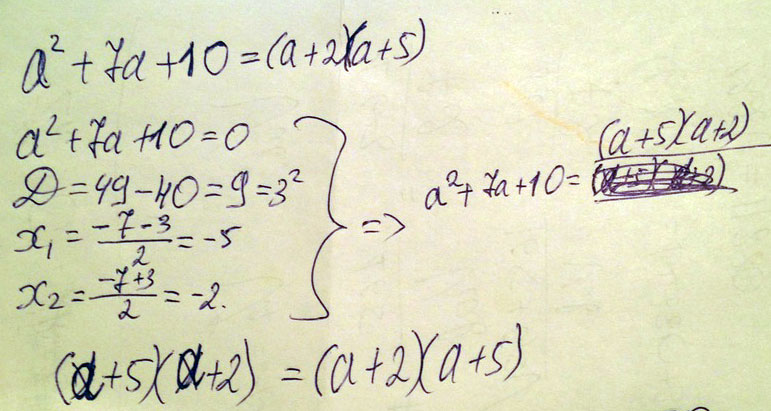 a² + 7a + 10 = (a+2)(a+5)
a² + 7a + 10 = 0
D = 49 - 40 = 9 = 3²
x₁ = (-7-3)/2 = -5
x₂ = (-7+3)/2 = -2.
=> a² + 7a + 10 = (a+5)(a+2)
(a+5)(a+2) = (a+2)(a+5)